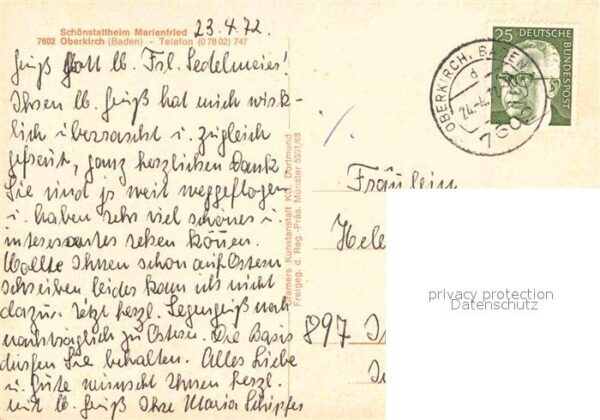 Schönstattheim Marienfried
7602 Oberkirch (Baden) - Telefon (07802) 747
23.4.72.
Grüß Gott lb. Frl. Sedelmeier!
Ihren lb. Gruß hat mich wirk-
lich überrascht u. zugleich
gefreut, ganz herzlichen Dank
Sie sind ja weit weggeflogen
u. haben sehr viel schönes u.
interessantes sehen können.
Wollte Ihnen schon auf Ostern
schreiben leider kam ich nicht
dazu. Jetzt herzl. Segensgruß noch
nachträglich zu Ostern. Die
dürfen Sie behalten. Alles Liebe
u. Gute wünscht Ihnen herzl.
mit lb. Gruß Ihre Maria Schipfer
Cramers Kunstanstalt KG, Dortmund
Freigeg. d. Reg.-Präs. Münster 5551/68
25 DEUTSCHE BUNDESPOST
OBERKIRCH, BADEN
d
7602
Fräulein
Hele
privacy protection
Datenschutz
897